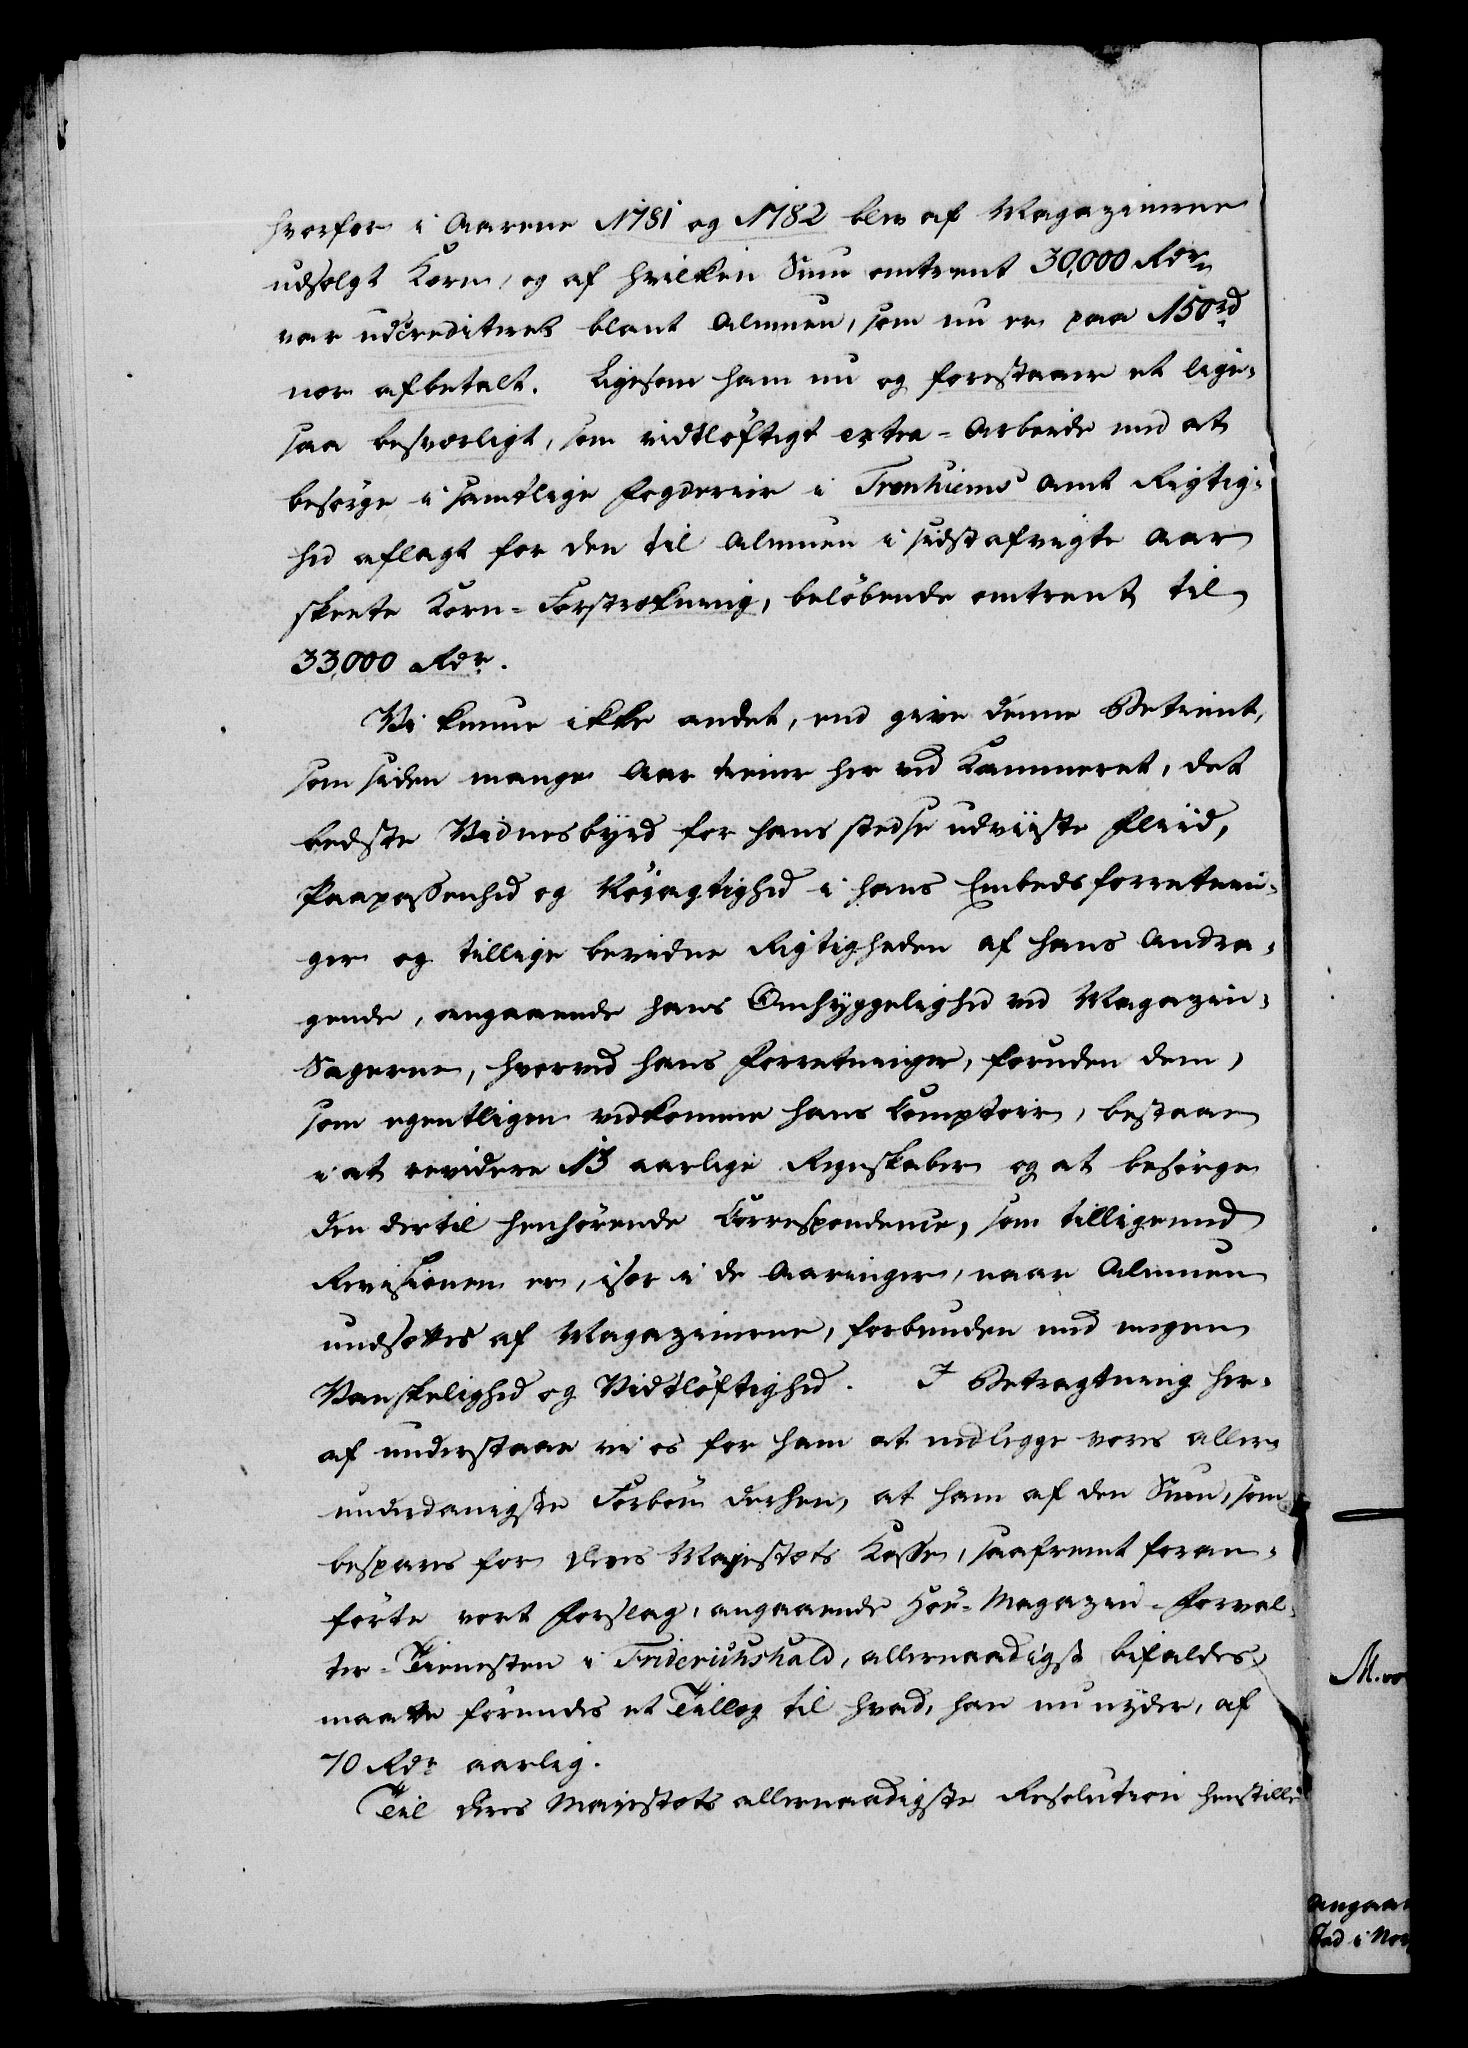 hvorfor i Aarene 1781 og 1782 blev af Magazinerne
udsolgt Korn, og af hvilken Sum omtrent 30,000 Rdr
var udcrediteret blant Almuen, som nu er paa 150rd
nær afbetalt. Ligesom ham nu og forestaaer et lige-
saa besværligt, som vidtløftigt extra-Arbeide med at
besørge i samtlige Fogderier i Tronhiems Amt Rigtig-
hed aflagt for den til Almuen i sidstafvigte Aar
skeete Korn-Forstrækning, beløbende omtrent til
33,000 Rdr.
Vi kunne ikke andet, end give denne Betient,
som siden mange Aar tiener her ved Kammeret, det
bedste Vidnesbyrd for hans stedse udviiste Fliid,
Paapassenhed og Nøiagtighed i hans Embedsforretnin-
ger og tillige bevidne Rigtigheden af hans Andra-
gende, angaaende hans Omhyggelighed ved Magazin-
Sagerne, hvorved hans Forretninger, foruden dem,
som egentligen vedkomme hans Comptoir, bestaaer
i at revidere 13 aarlige Regnskaber og at besørge
den dertil henhørende Correspondence, som tilligemed
Revisionen er, især i de Aaringer, naar Almuen
undsættes af Magazinerne, forbunden med megen
Vanskelighed og Vidtløftighed. I Betragtning her-
af understaae vi os for ham at nedlegge vores aller-
underdanigste Forbøn derhen, at ham af den Sum, som
bespares for Deres Majestæts Kasse, saafremt foran-
førte vort Forslag, angaaende Høe-Magazin-Forval-
ter-Tienesten i Friderichshald, allernaadigst bifaldes,
maatte forundes et Tillæg til hvad, han nu nyder, af
70 Rdr aarlig.
Til Deres Majestæts allernaadigste Resolution henstille
M.
angaa
Tad i Nor